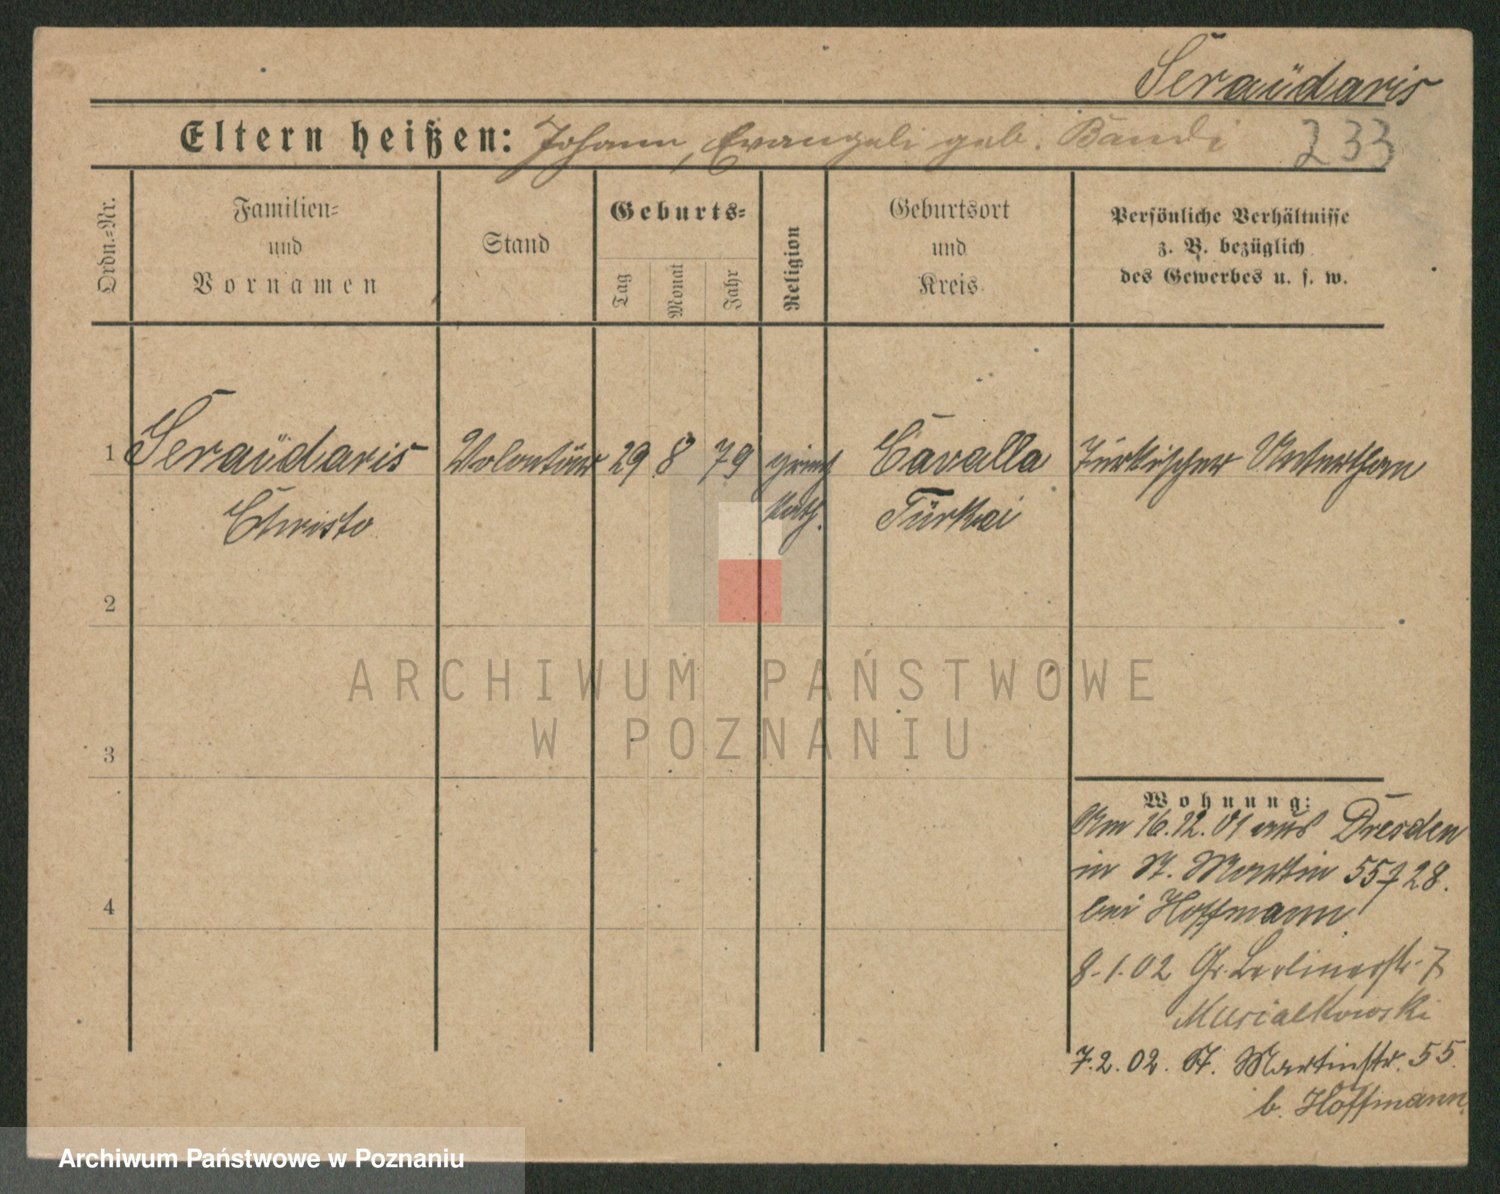 Seraüdaris
Eltern heißen: Johann, Evangeli geb. Bandi 233
Ordn.=Nr.
Familien=
und
Vornamen
Stand
Geburts=
Tag
Monat
Jahr
Religion
Geburtsort
und
Kreis
Persönliche Verhältnisse
z. B. bezüglich
des Gewerbes u. s. w.
1 Seraüdaris Volontär 29 8 79 griech Cavalla Türkischer Unterthan
Christo kath. Türkei
2
ARCHIWUM PAŃSTWOWE
W POZNANIU
3
Wohnung:
Am 16.12.01 aus Dresden
in St. Martin 55 28.
bei Hoffmann
4
8.1.02 Gr. Berlinerstr. 7
Musialkowski
7.2.02. St. Martinstr. 55.
b. Hoffmann
Archiwum Państwowe w Poznaniu